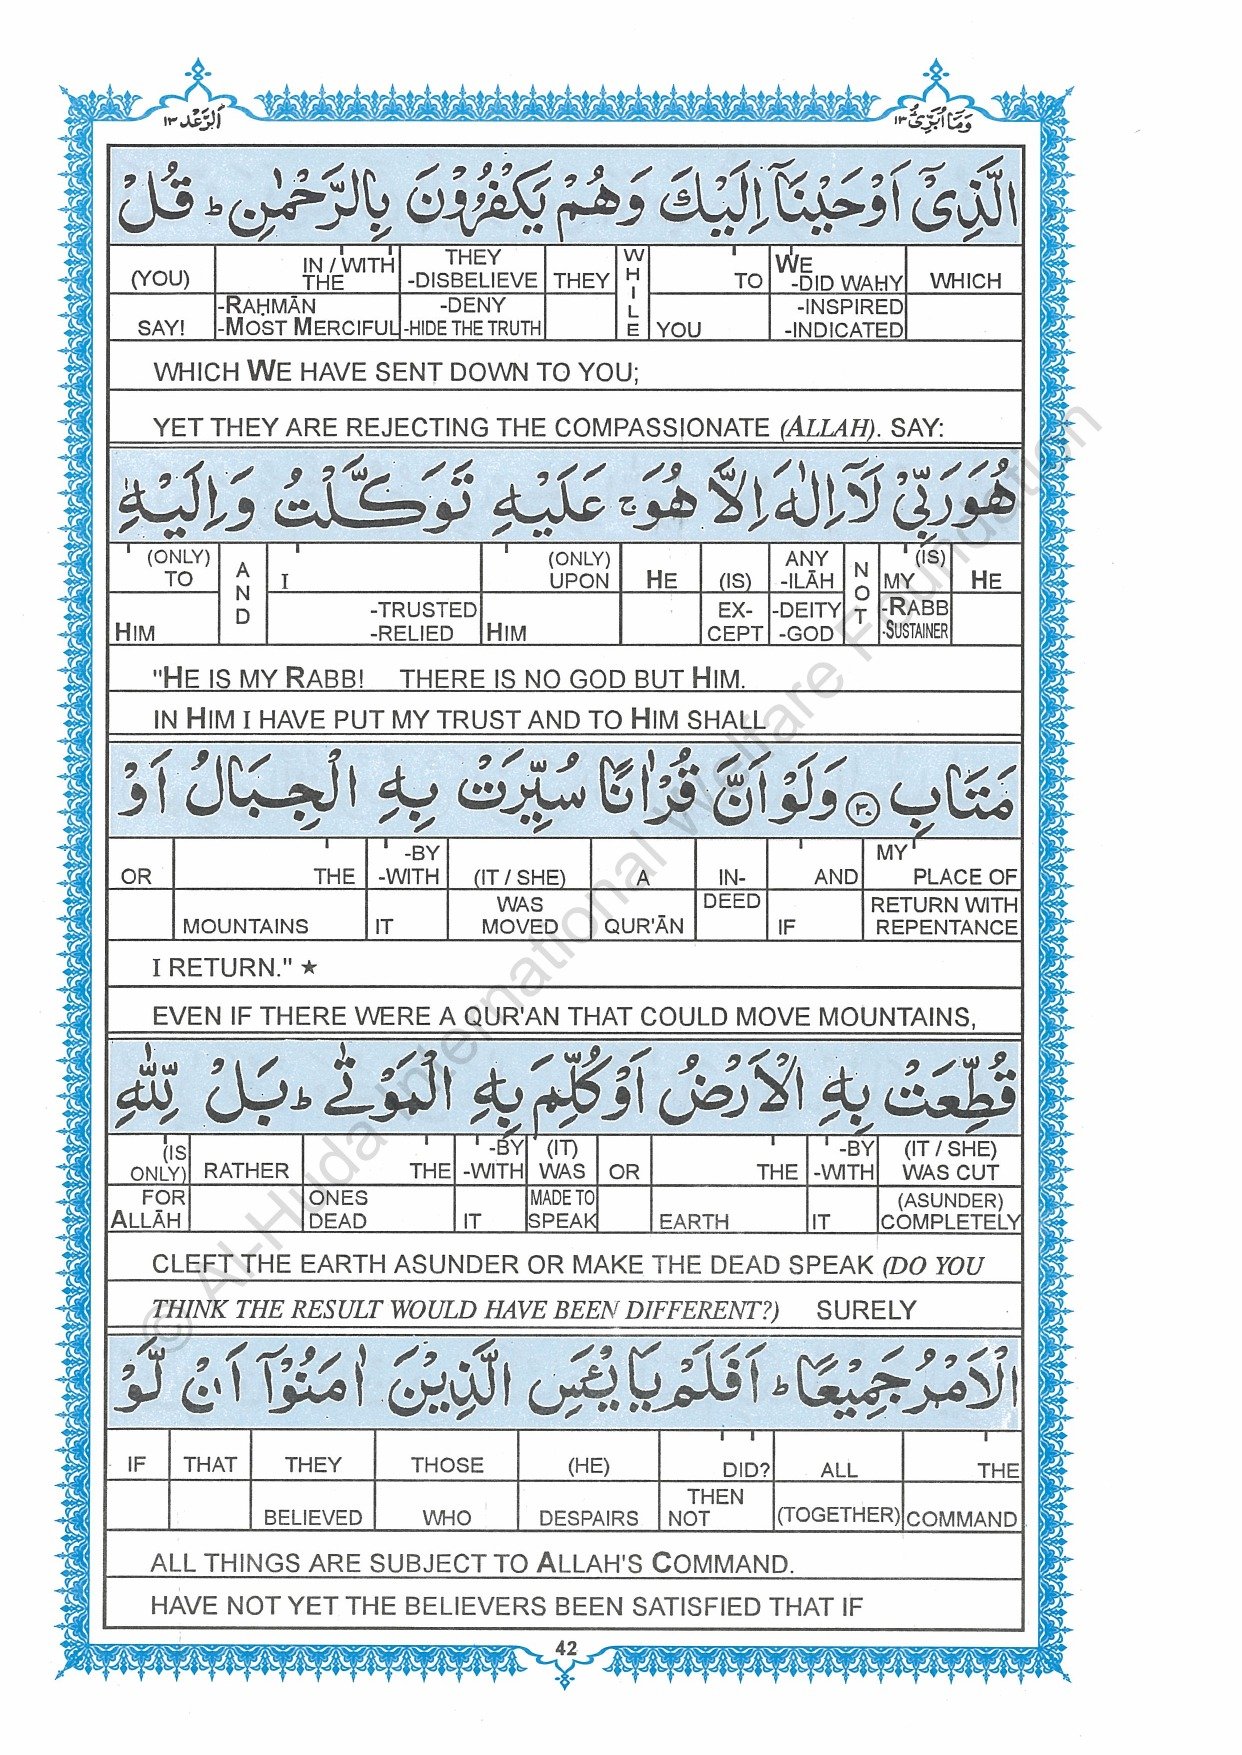 اَلرَّعْد ١٣ وَمَآ اُبَرِّئُ ١٣
الَّذِىْٓ اَوْحَيْنَآ اِلَيْكَ وَهُمْ يَكْفُرُوْنَ بِالرَّحْمٰنِ ؕ قُلْ
(YOU) IN / WITH THE THEY -DISBELIEVE THEY WHILE TO WE -DID WAHY WHICH
SAY! -RAḤMĀN -MOST MERCIFUL -DENY -HIDE THE TRUTH YOU -INSPIRED -INDICATED
WHICH WE HAVE SENT DOWN TO YOU;
YET THEY ARE REJECTING THE COMPASSIONATE (ALLAH). SAY:
هُوَ رَبِّىْ لَآ اِلٰهَ اِلَّا هُوَ ۚ عَلَيْهِ تَوَكَّلْتُ وَ اِلَيْهِ
(ONLY) TO AND I (ONLY) UPON HE (IS) ANY -ILĀH NOT (IS) MY HE
HIM -TRUSTED -RELIED HIM EX- CEPT -DEITY -GOD -RABB -SUSTAINER
"HE IS MY RABB! THERE IS NO GOD BUT HIM.
IN HIM I HAVE PUT MY TRUST AND TO HIM SHALL
مَتَابِ ٣٠ وَلَوْ اَنَّ قُرْاٰنًا سُيِّرَتْ بِهِ الْجِبَالُ اَوْ
OR THE -BY -WITH (IT / SHE) A IN- AND MY PLACE OF
MOUNTAINS IT WAS MOVED QUR'ĀN DEED IF RETURN WITH REPENTANCE
I RETURN." ★
EVEN IF THERE WERE A QUR'AN THAT COULD MOVE MOUNTAINS,
قُطِّعَتْ بِهِ الْاَرْضُ اَوْ كُلِّمَ بِهِ الْمَوْتٰى ؕ بَلْ لِّلّٰهِ
(IS ONLY) RATHER THE -BY -WITH (IT) WAS OR THE -BY -WITH (IT / SHE) WAS CUT
FOR ALLĀH ONES DEAD IT MADE TO SPEAK EARTH IT (ASUNDER) COMPLETELY
CLEFT THE EARTH ASUNDER OR MAKE THE DEAD SPEAK (DO YOU
THINK THE RESULT WOULD HAVE BEEN DIFFERENT?) SURELY
الْاَمْرُ جَمِيْعًا ؕ اَفَلَمْ يَايْـَٔسِ الَّذِيْنَ اٰمَنُوْٓا اَنْ لَّوْ
IF THAT THEY THOSE (HE) DID? ALL THE
BELIEVED WHO DESPAIRS THEN NOT (TOGETHER) COMMAND
ALL THINGS ARE SUBJECT TO ALLAH'S COMMAND.
HAVE NOT YET THE BELIEVERS BEEN SATISFIED THAT IF
42
© Al-Huda International Welfare Foundation